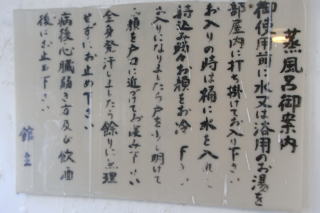 蒸風呂御案内
御使用前に水又は浴用のお湯を
部屋内に打ち掛けてお入り下さい
お入りの時は桶に水を入れ
持込み時々お顔をお冷し下さい
お入りになりましたら戸を少し明けて
お顔を戸口に近づけてお涼み下さい
全身発汗しましたら餘りに無理
せずにお止め下さい
病後心臓弱き方及び飲酒
後にお止め下さい
館主